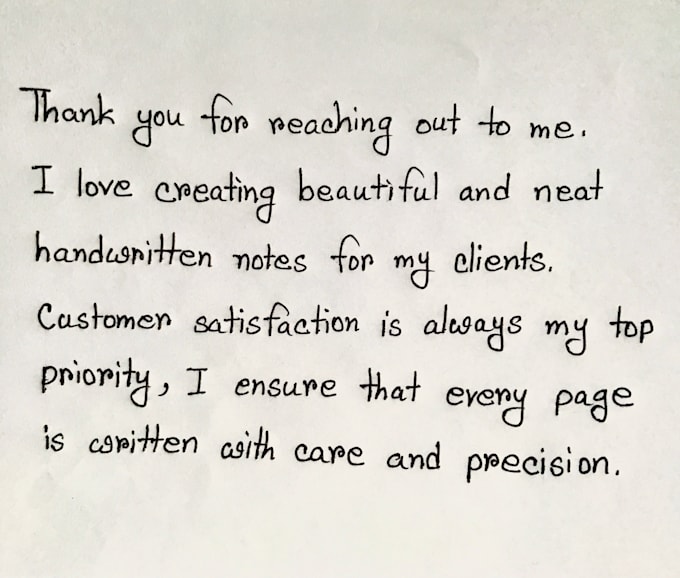 Thank you for reaching out to me.
I love creating beautiful and neat
handwritten notes for my clients.
Customer satisfaction is always my top
priority, I ensure that every page
is written with care and precision.